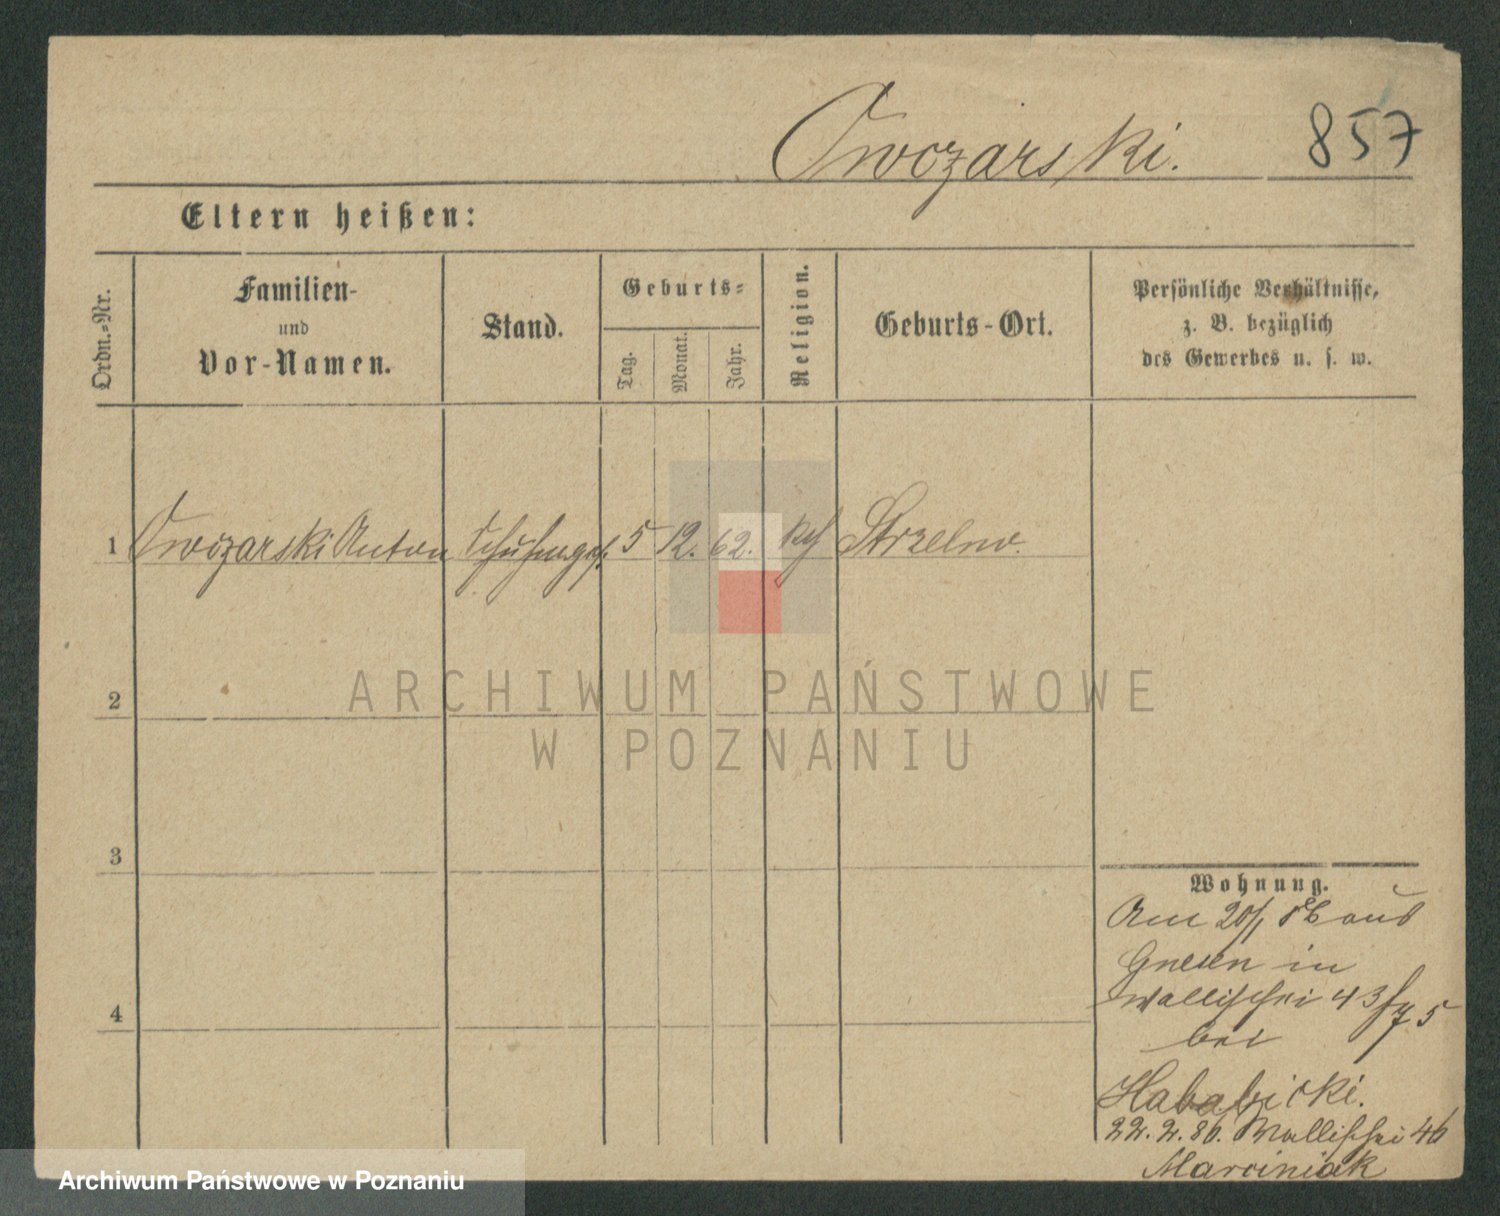 Owozarski. 857
Eltern heißen:
Ordn.=Nr.
Familien-
und
Vor-Namen.
Stand.
Geburts=
Tag.
Monat.
Jahr.
Religion.
Geburts-Ort.
Persönliche Verhältnisse,
z. B. bezüglich
des Gewerbes u. s. w.
1 Owozarski Anton Schuhmges. 5 12. 62. kth Strzelno.
2
3
4
Wohnung.
Am 20/1 86 aus
Gnesen in
Wallischei 43
bei
22. 2. 86. Wallischei 46
Marciniak
ARCHIWUM PAŃSTWOWE
W POZNANIU
Archiwum Państwowe w Poznaniu